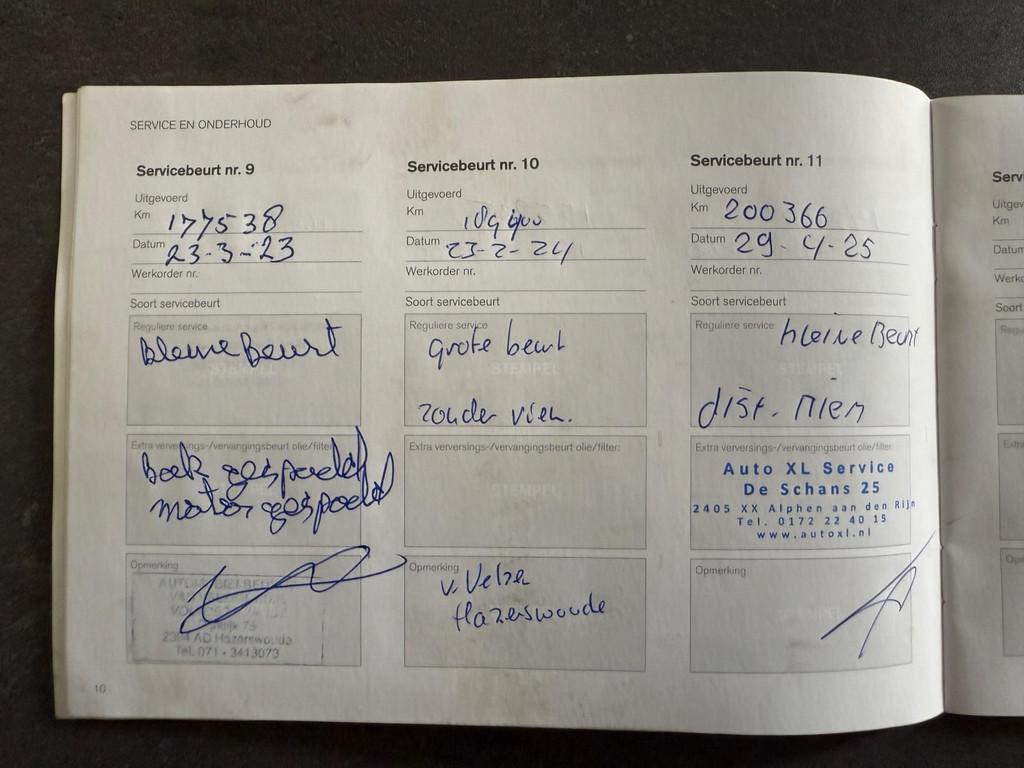 SERVICE EN ONDERHOUD
Servicebeurt nr. 9
Uitgevoerd
Km 177538
Datum 23-3-'23
Werkorder nr.
Soort servicebeurt
Reguliere service
kleine Beurt
Extra verversings-/vervangingsbeurt olie/filter:
motor gespoeld
Opmerking
2394 AD Hazerswoude
Tel. 071 - 3413073
10
Servicebeurt nr. 10
Uitgevoerd
Km
Datum 23-2-24
Werkorder nr.
Soort servicebeurt
Reguliere service
grote beurt
STEMPEL
zonder
Extra verversings-/vervangingsbeurt olie/filter:
STEMPEL
Opmerking
v. Velzen
Hazerswoude
Servicebeurt nr. 11
Uitgevoerd
Km 200366
Datum 29-4-25
Werkorder nr.
Soort servicebeurt
Reguliere service
kleine Beurt
dist. riem
Extra verversings-/vervangingsbeurt olie/filter:
Auto XL Service
De Schans 25
2405 XX Alphen aan den Rijn
Tel. 0172 22 40 15
www.autoxl.nl
Opmerking
Km